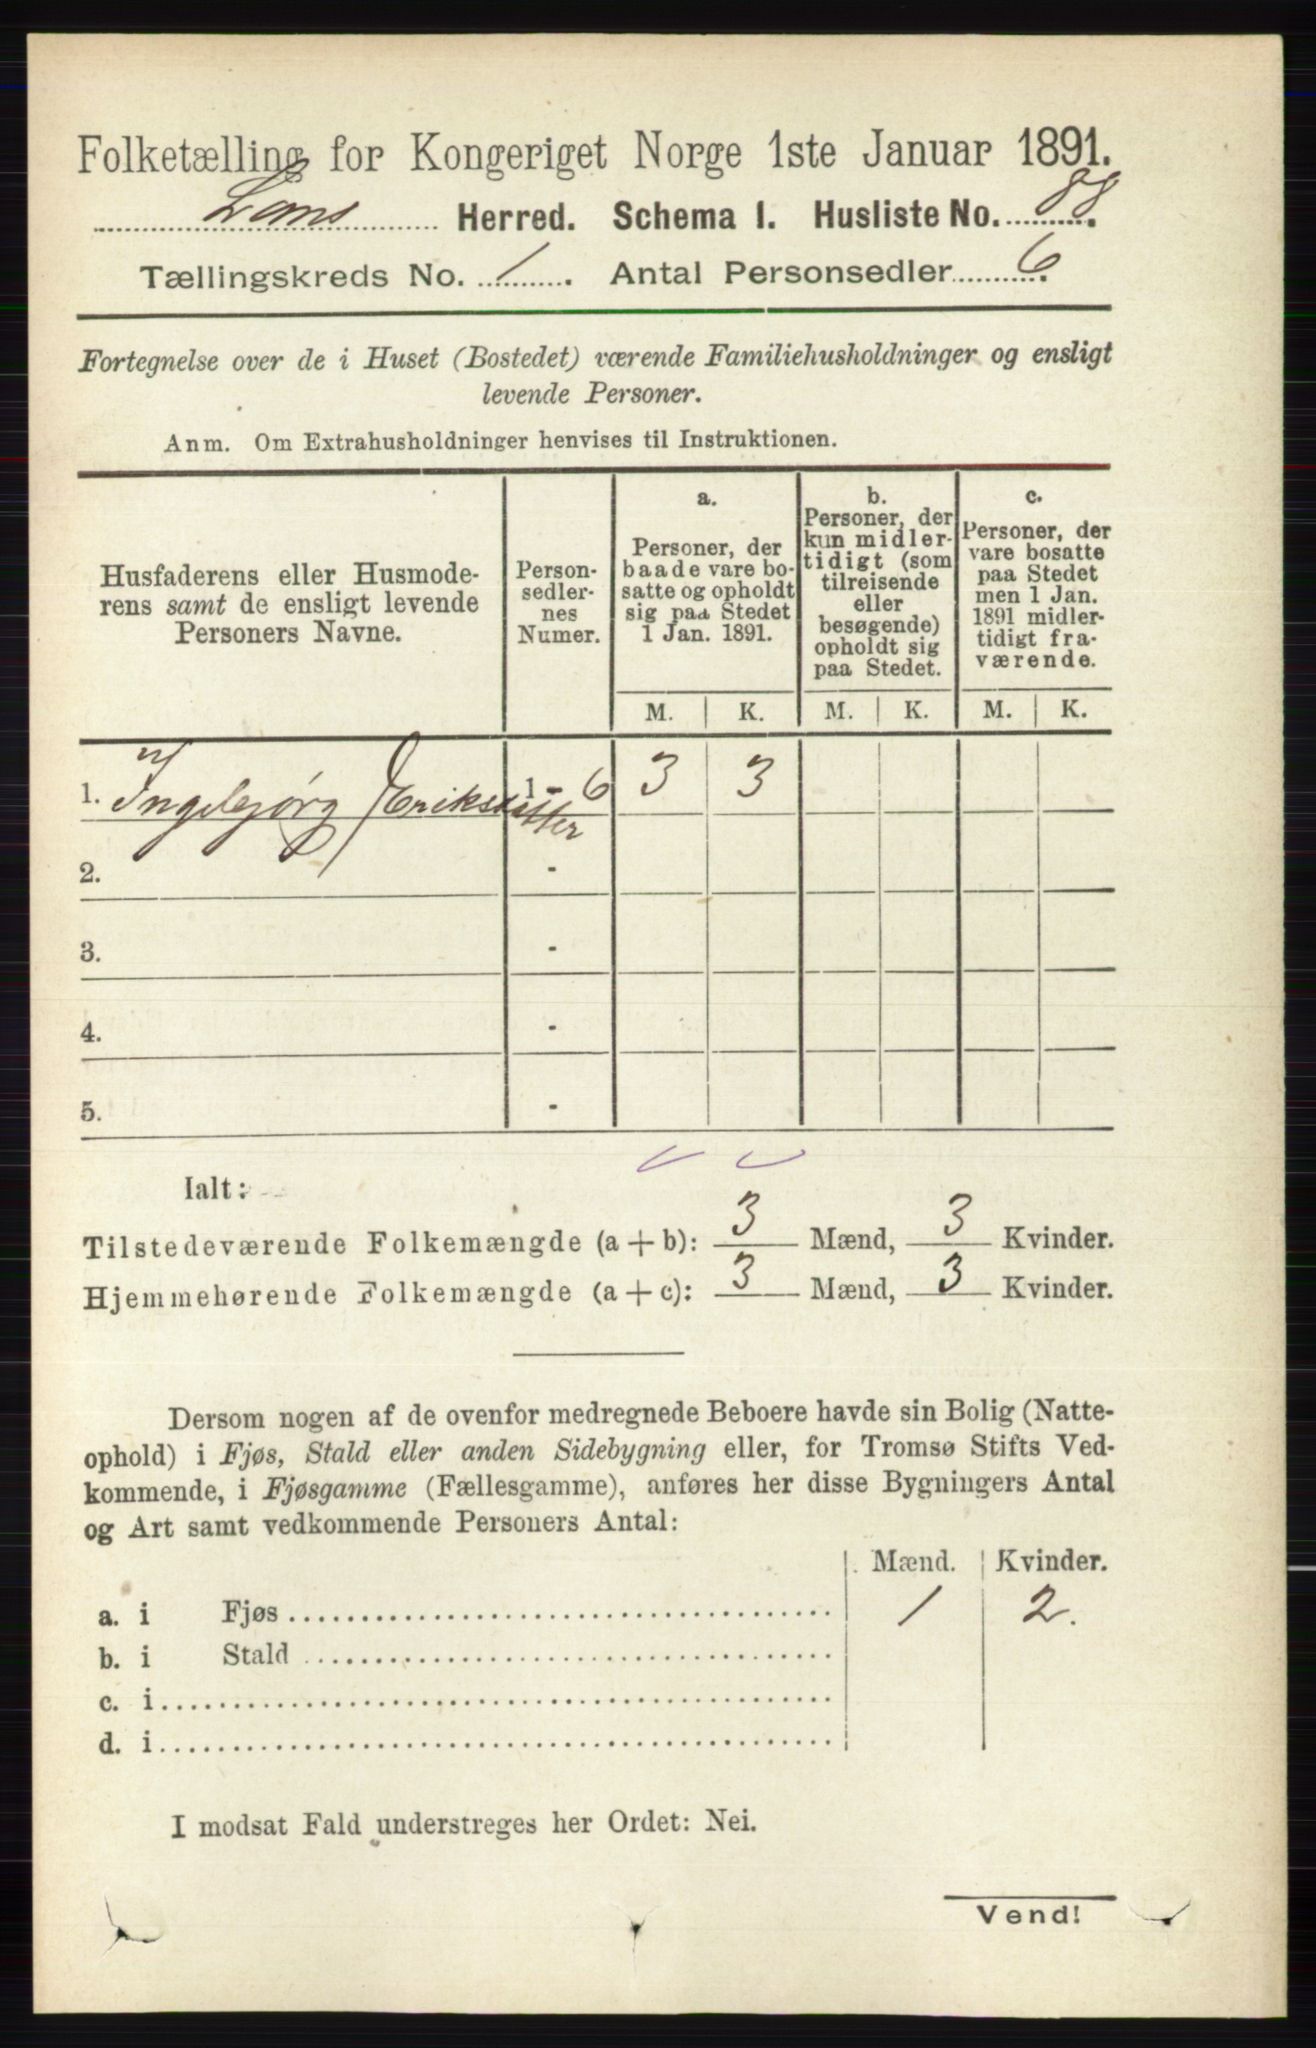 Folketælling for Kongeriget Norge 1ste Januar 1891.
Loms Herred. Schema I. Husliste No. 88.
Tællingskreds No. 1. Antal Personsedler 6.
Fortegnelse over de i Huset (Bostedet) værende Familiehusholdninger og ensligt
levende Personer.
Anm. Om Extrahusholdninger henvises til Instruktionen.
Husfaderens eller Husmode-
rens samt de ensligt levende
Personers Navne.
Person-
sedler-
nes
Numer.
a.
Personer, der
baade vare bo-
satte og opholdt
sig paa Stedet
1 Jan. 1891.
b.
Personer, der
kun midler-
tidigt (som
tilreisende
eller
besøgende)
opholdt sig
paa Stedet.
c.
Personer, der
vare bosatte
paa Stedet
men 1 Jan.
1891 midler-
tidigt fra-
værende.
M. K. M. K. M. K.
1. Ingebjørg Eriksdatter 1 - 6 3 3
2. -
3. -
4. -
5. -
Ialt:
Tilstedeværende Folkemængde (a + b): 3 Mænd, 3 Kvinder.
Hjemmehørende Folkemængde (a + c): 3 Mænd, 3 Kvinder.
Dersom nogen af de ovenfor medregnede Beboere havde sin Bolig (Natte-
ophold) i Fjøs, Stald eller anden Sidebygning eller, for Tromsø Stifts Ved-
kommende, i Fjøsgamme (Fællesgamme), anføres her disse Bygningers Antal
og Art samt vedkommende Personers Antal:
Mænd. Kvinder.
a. i Fjøs 1 2.
b. i Stald
c. i
d. i
I modsat Fald understreges her Ordet: Nei.
Vend!